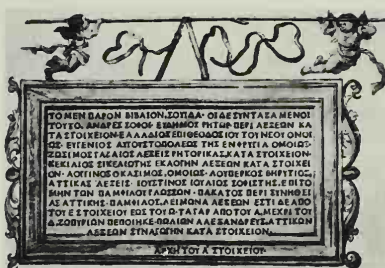 ΤΟ ΜΕΝ ΠΑΡΟΝ ΒΙΒΛΙΟΝ, ΣΟΥΙΔΑ· ΟΙ ΔΕ ΣΥΝΤΑΞΑΜΕΝΟΙ
ΤΟΥΤΟ, ΑΝΔΡΕΣ ΣΟΦΟΙ· ΕΥΔΗΜΟΣ ΡΗΤΩΡ ΠΕΡΙ ΛΕΞΕΩΝ ΚΑ
ΤΑ ΣΤΟΙΧΕΙΟΝ· ΕΛΛΑΔΙΟΣ ΕΠΙ ΘΕΟΔΟΣΙΟΥ ΤΟΥ ΝΕΟΥ ΟΜΟΙ
ΩΣ· ΕΥΓΕΝΙΟΣ ΑΥΓΟΥΣΤΟΠΟΛΕΩΣ ΤΗΣ ΕΝ ΦΡΥΓΙΑ ΟΜΟΙΩΣ·
ΖΩΣΙΜΟΣ ΓΑΖΑΙΟΣ ΛΕΞΕΙΣ ΡΗΤΟΡΙΚΑΣ, ΚΑΤΑ ΣΤΟΙΧΕΙΟΝ·
ΚΕΚΙΛΙΟΣ ΣΙΚΕΛΙΩΤΗΣ ΕΚΛΟΓΗΝ ΛΕΞΕΩΝ ΚΑΤΑ ΣΤΟΙΧΕΙ
ΟΝ· ΛΟΓΓΙΝΟΣ Ο ΚΑΣΙΜΟΣ, ΟΜΟΙΩΣ· ΛΟΥΠΕΡΚΟΣ ΒΗΡΥΤΙΟΣ,
ΑΤΤΙΚΑΣ ΛΕΞΕΙΣ· ΙΟΥΣΤΙΝΟΣ ΙΟΥΛΙΟΣ ΣΟΦΙΣΤΗΣ, ΕΠΙΤΟ
ΜΗΝ ΤΩΝ ΠΑΜΦΙΛΟΥ ΓΛΩΣΣΩΝ· ΠΑΚΑΤΟΣ ΠΕΡΙ ΣΥΝΗΘΕΙ
ΑΣ ΑΤΤΙΚΗΣ· ΠΑΜΦΙΛΟΣ, ΛΕΙΜΩΝΑ ΛΕΞΕΩΝ ΕΣΤΙ ΔΕ ΑΠΟ
ΤΟΥ Ε ΣΤΟΙΧΕΙΟΥ ΕΩΣ ΤΟΥ Ω· ΤΑ ΓΑΡ ΑΠΟ ΤΟΥ Α, ΜΕΧΡΙ ΤΟΥ
Δ, ΖΩΠΥΡΙΩΝ ΠΕΠΟΙΗΚΕ· ΠΩΛΙΩΝ ΑΛΕΞΑΝΔΡΕΥΣ, ΑΤΤΙΚΩΝ
ΛΕΞΕΩΝ ΣΥΝΑΓΩΓΗΝ ΚΑΤΑ ΣΤΟΙΧΕΙΟΝ,
ΑΡΧΗ ΤΟΥ Α ΣΤΟΙΧΕΙΟΥ·